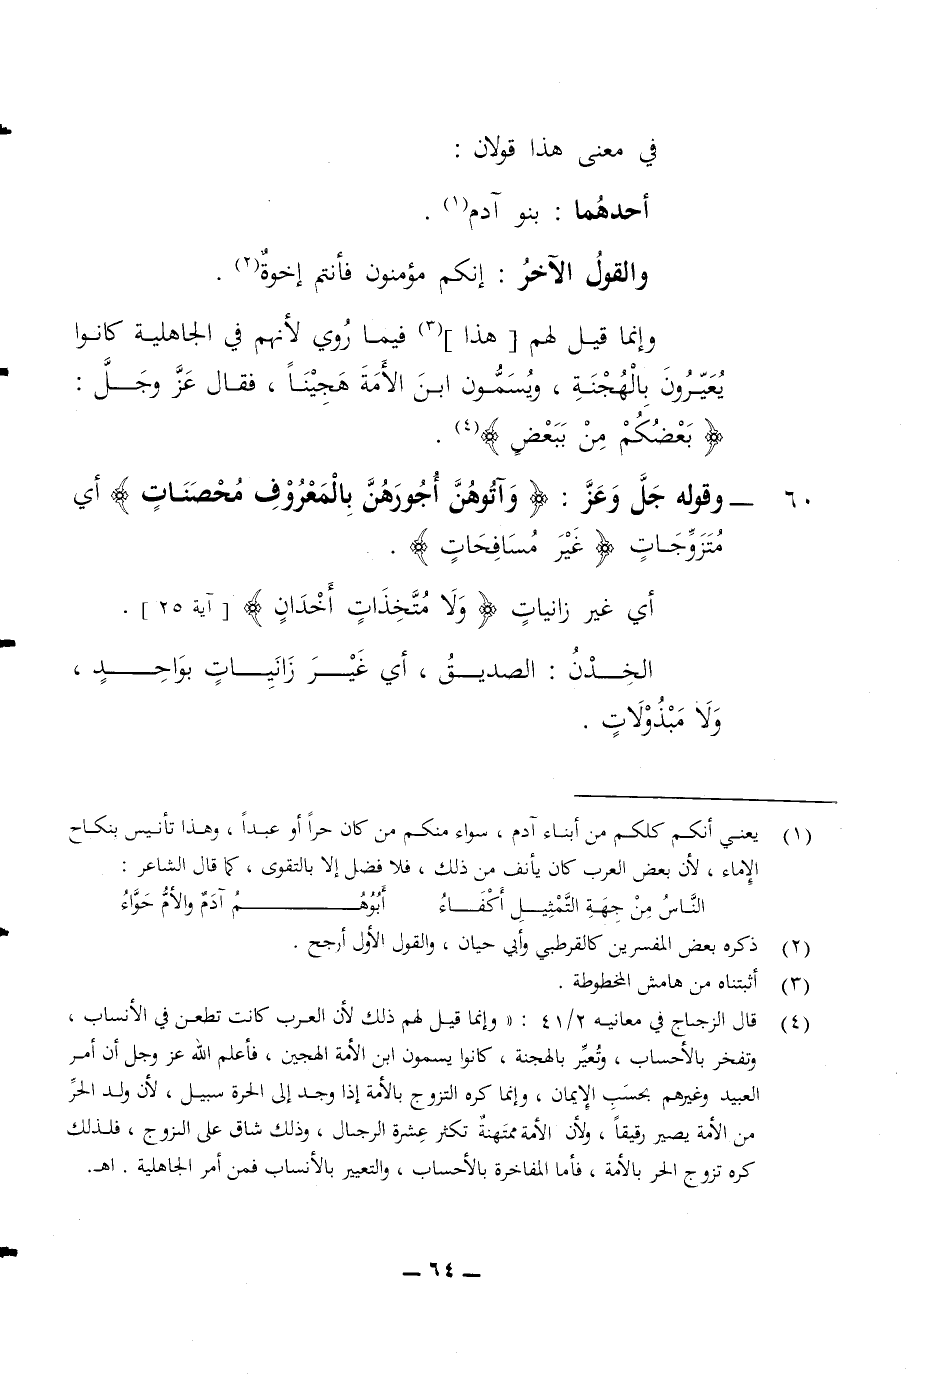 في معنى هذا قولان :
أحدهُما : بنو آدم(١) .
والقولُ الآخرُ : إنكم مؤمنون فأنتم إخوةٌ(٢) .
وإنما قيل لهم [ هذا ](٣) فيما رُوي لأنهم في الجاهلية كانوا
يُعَيِّرُونَ بِالْهُجْنَةِ ، ويُسَمُّون ابنَ الأَمَةَ هَجِيْنَاً ، فقال عَزَّ وجَلَّ :
﴿ بَعْضُكُمْ مِنْ بَبَعْضٍ ﴾(٤) .
٦٠ ـ وقوله جَلَّ وَعَزَّ : ﴿ وَآتُوهُنَّ أُجُورَهُنَّ بِالْمَعْرُوْفِ مُحْصَنَاتٍ ﴾ أي
مُتَزَوِّجَاتٍ ﴿ غَيْرَ مُسَافِحَاتٍ ﴾ .
أي غير زانياتٍ ﴿ وَلَا مُتَّخِذَاتِ أَخْدَانٍ ﴾ [ آية ٢٥ ] .
الخِدْنُ : الصديقُ ، أي غَيْرَ زَانَيَاتٍ بوَاحِدٍ ،
وَلَا مَبْذُوْلَاتٍ .
(١) يعني أنكم كلكم من أبناء آدم ، سواء منكم من كان حراً أو عبداً ، وهذا تأنيس بنكاح
الإِماء ، لأن بعض العرب كان يأنف من ذلك ، فلا فضل إلا بالتقوى ، كما قال الشاعر :
النَّاسُ مِنْ جِهَةِ التَّمْثِيلِ أَكْفَاءُ أَبُوْهُمُ آدَمٌ والأمُّ حَوَّاءُ
(٢) ذكره بعض المفسرين كالقرطبي وأبي حيان ، والقول الأول أرجح .
(٣) أثبتناه من هامش المخطوطة .
(٤) قال الزجاج في معانيه ٤١/٢ : « وإنما قيل لهم ذلك لأن العرب كانت تطعن في الأنساب ،
وتفخر بالأحساب ، وتُعيِّر بالهجنة ، كانوا يسمون ابن الأمة الهجين ، فأعلم الله عز وجل أن أمر
العبيد وغيرهم بحسَبِ الإِيمان ، وإنما كره التزوج بالأمة إذا وجد إلى الحرة سبيل ، لأن ولد الحرِّ
من الأمة يصير رقيقاً ، ولأن الأمة ممتهنةٌ تكثر عِشرة الرجال ، وذلك شاق على الزوج ، فلذلك
كره تزوج الحر بالأمة ، فأما المفاخرة بالأحساب ، والتعيير بالأنساب فمن أمر الجاهلية . اهـ.
ـ ٦٤ ـ